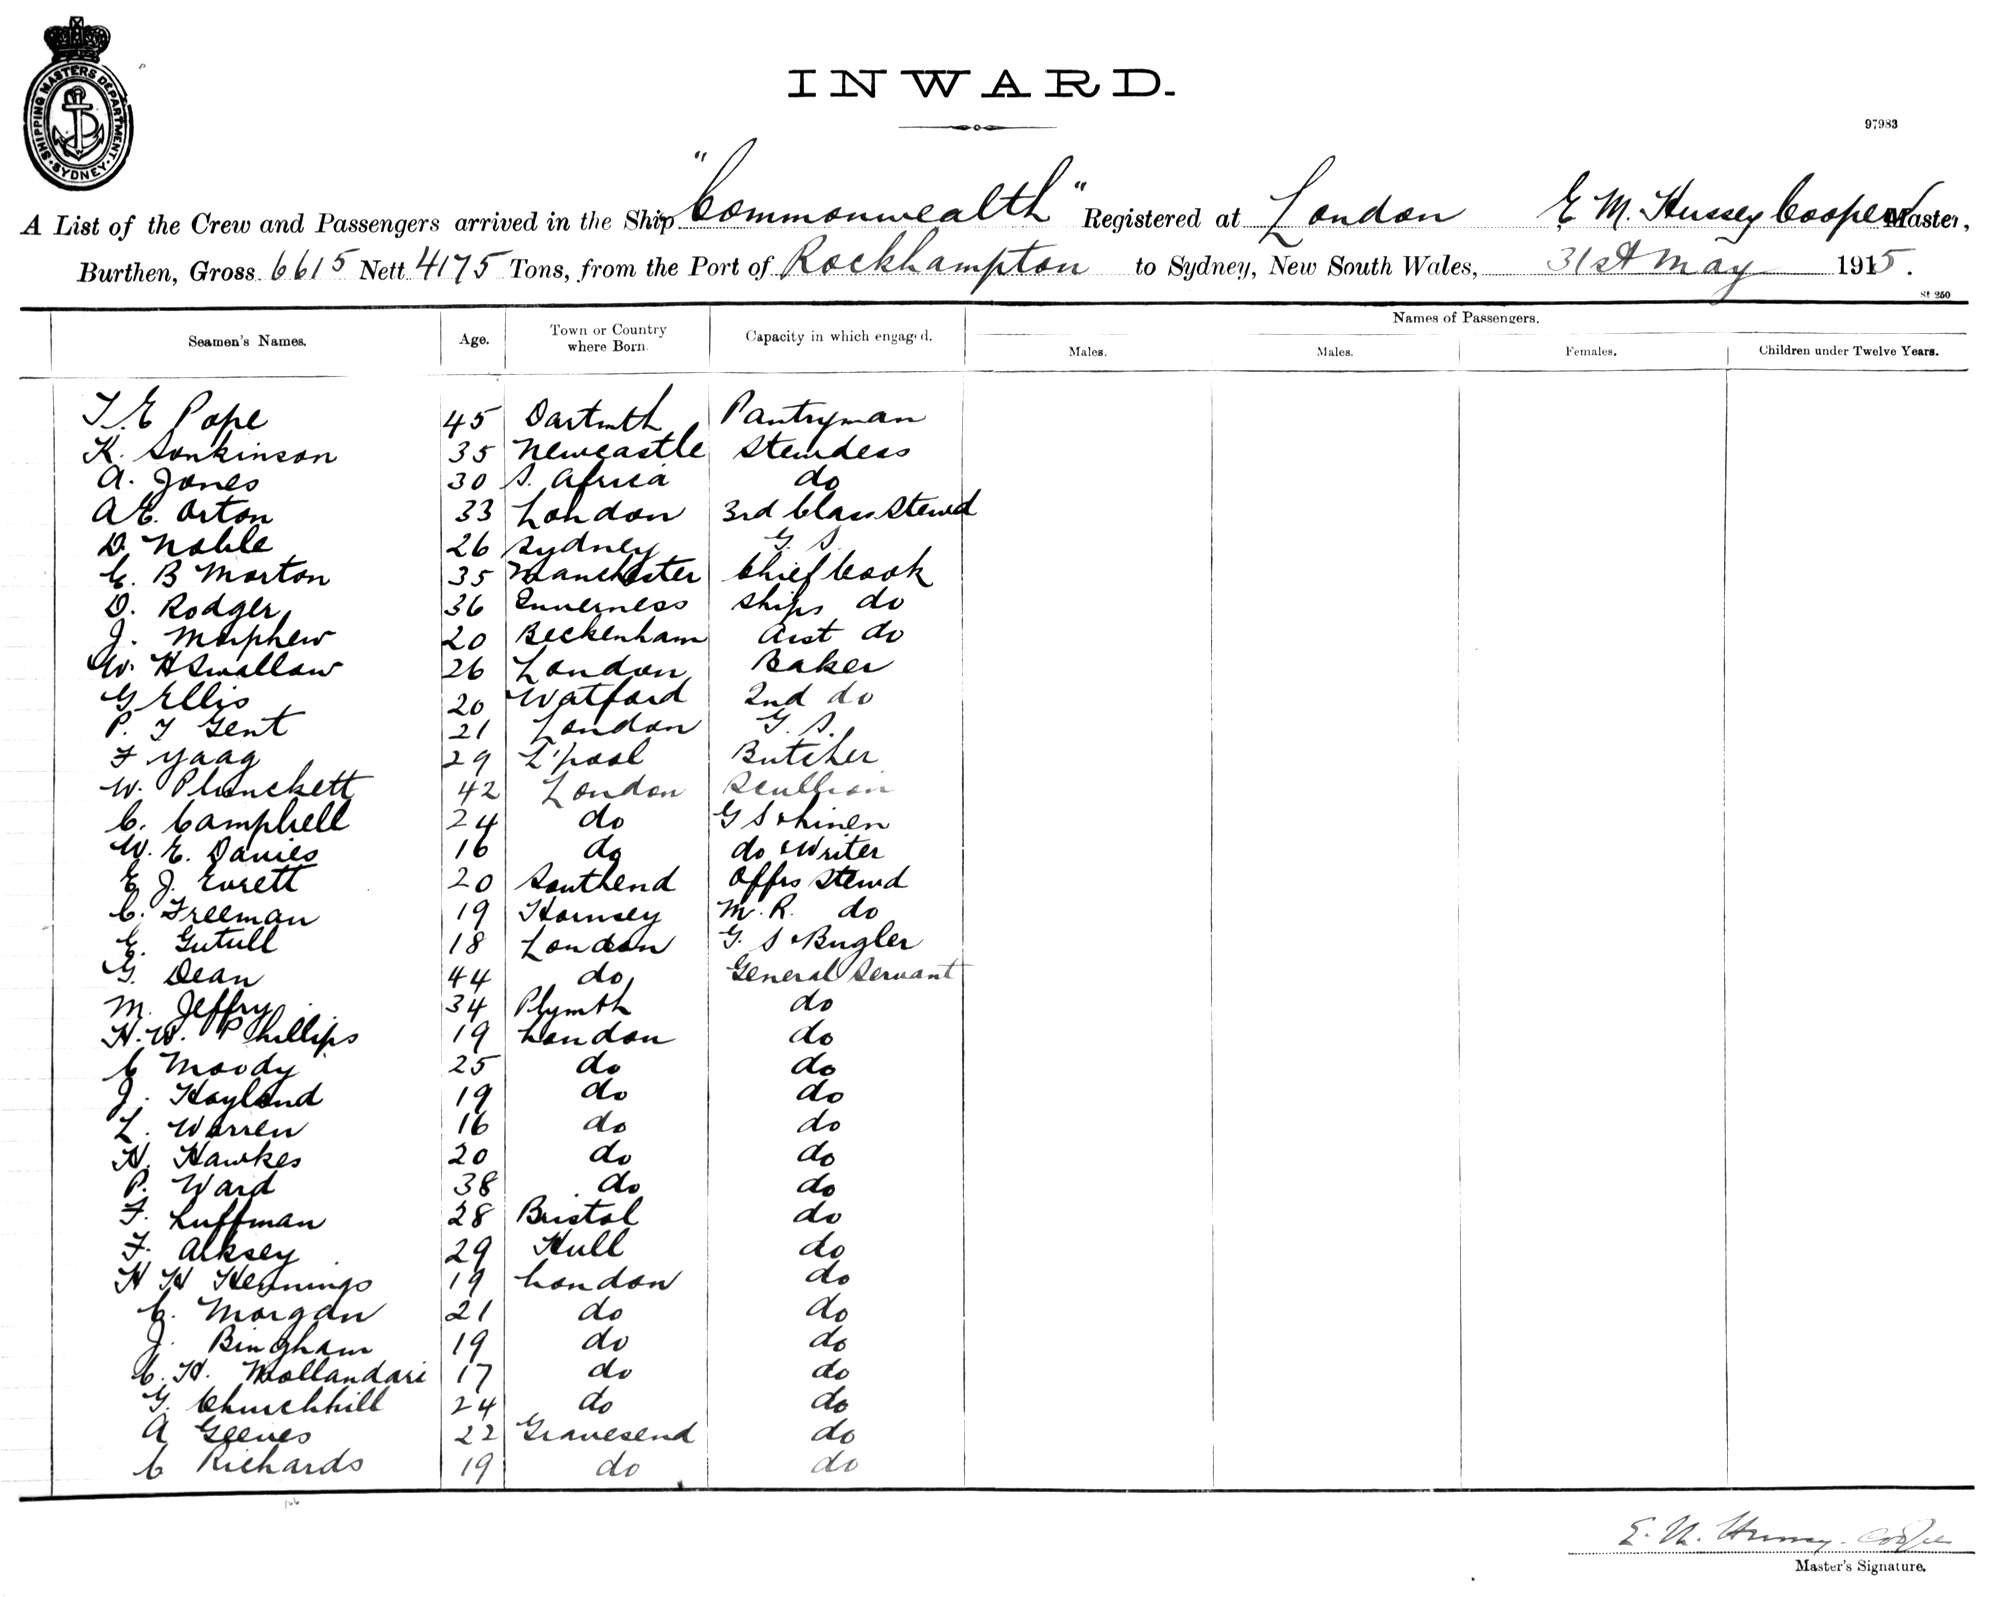 SHIPPING MASTERS DEPARTMENT. SYDNEY.
INWARD.
97983
A List of the Crew and Passengers arrived in the Ship "Commonwealth" Registered at London E M. Hussey Cooper Master,
Burthen, Gross 6615 Nett 4175 Tons, from the Port of Rockhampton to Sydney, New South Wales, 31st May 1915.
St 250
Seamen's Names. Age. Town or Country where Born. Capacity in which engaged. Names of Passengers.
Males. Males. Females. Children under Twelve Years.
T. E Pope 45 Dartmth Pantryman
K. Sonkinson 35 Newcastle Stewdess
A. Jones 30 S. Africa do
A E. Orton 33 London 3rd Class Stewd
D. Noble 26 Sydney G. S.
E. B Morton 35 Manchester Chief Cook
D. Rodger 36 Inverness Ships do
J. Morphew 20 Beckenham Asst do
W. H Swallow 26 London Baker
G Ellis 20 Watford 2nd do
P. T Gent 21 London G. S.
F Yaag 29 L'pool Butcher
W. Plunckett 42 London Scullion
C. Campbell 24 do G S & Linen
W. E. Davies 16 do do & Writer
E J. Everett 20 Southend Offrs Stewd
C. Freeman 19 Hornsey M. R. do
E. Gutull 18 London G. S & Bugler
G. Dean 44 do General Servant
M. Jeffry 34 Plymth do
H. W. Phillips 19 London do
C Moody 25 do do
J. Hayland 19 do do
L. Warren 16 do do
H. Hawkes 20 do do
P. Ward 38 do do
F. Luffman 28 Bristol do
F. Arksey 29 Hull do
H H Hennings 19 London do
C. Morgan 21 do do
J. Bingham 19 do do
C. H. Mollandari 17 do do
G. Churchhill 24 do do
A Geeves 22 Gravesend do
C Richards 19 do do
166
E. M. Hussey-Cooper
Master's Signature.